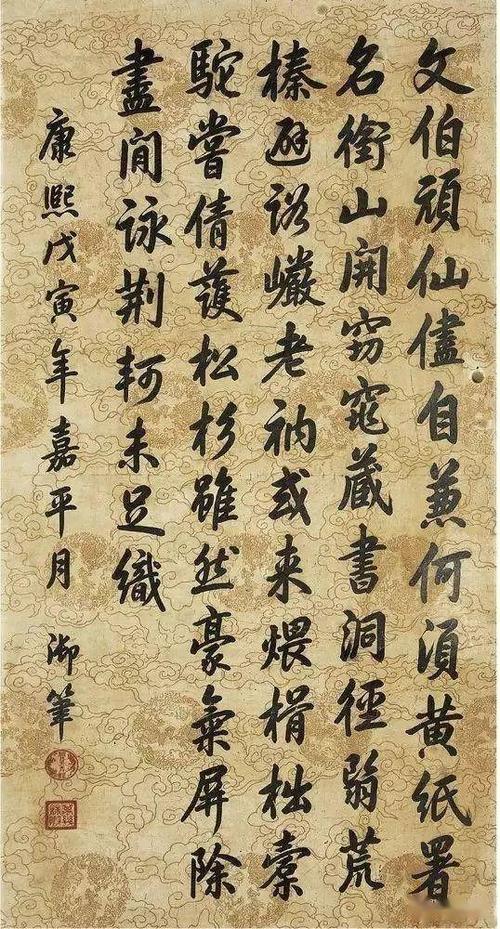 文伯頑仙儘自兼何須黃紙署
名銜山開窈窕藏書洞徑翦荒
榛避谿巉老衲或来煨榾柮橐
駝嘗倩護松杉雖然豪氣屏除
盡閒詠荆軻未足織
康熙戊寅年嘉平月 御筆